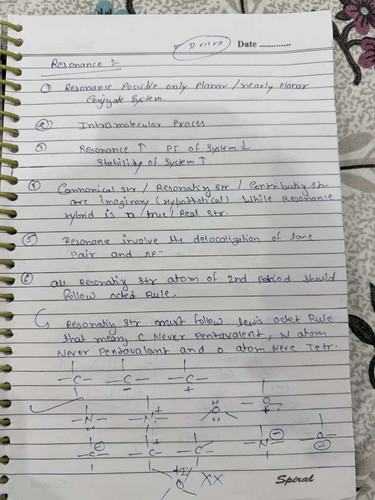 Date
Resonance :
① Resonance Possible only Planar / nearly planar
Conjugate System.
② Intramolecular Process
③ Resonance ↑ PE of System ↓
Stability of System ↑
④ Cannonical str / Resonating str / Contributing str
are imaginary (Hypothetical) While Resonance
Hybrid is a true / Real str.
⑤ Resonance involve the delocalization of lone
Pair and πe-
⑥ all Resonating str atom of 2nd Period Should
follow octet Rule.
Resonating str must follow lewis octet Rule
that means C Never Pentavalent, N atom
Never Pentavalant and O atom Neve Tetr.
-C- -C- -C-
- +
-N- -N- O O
-C- -C- -C- -N- -O-
O XX
Spiral